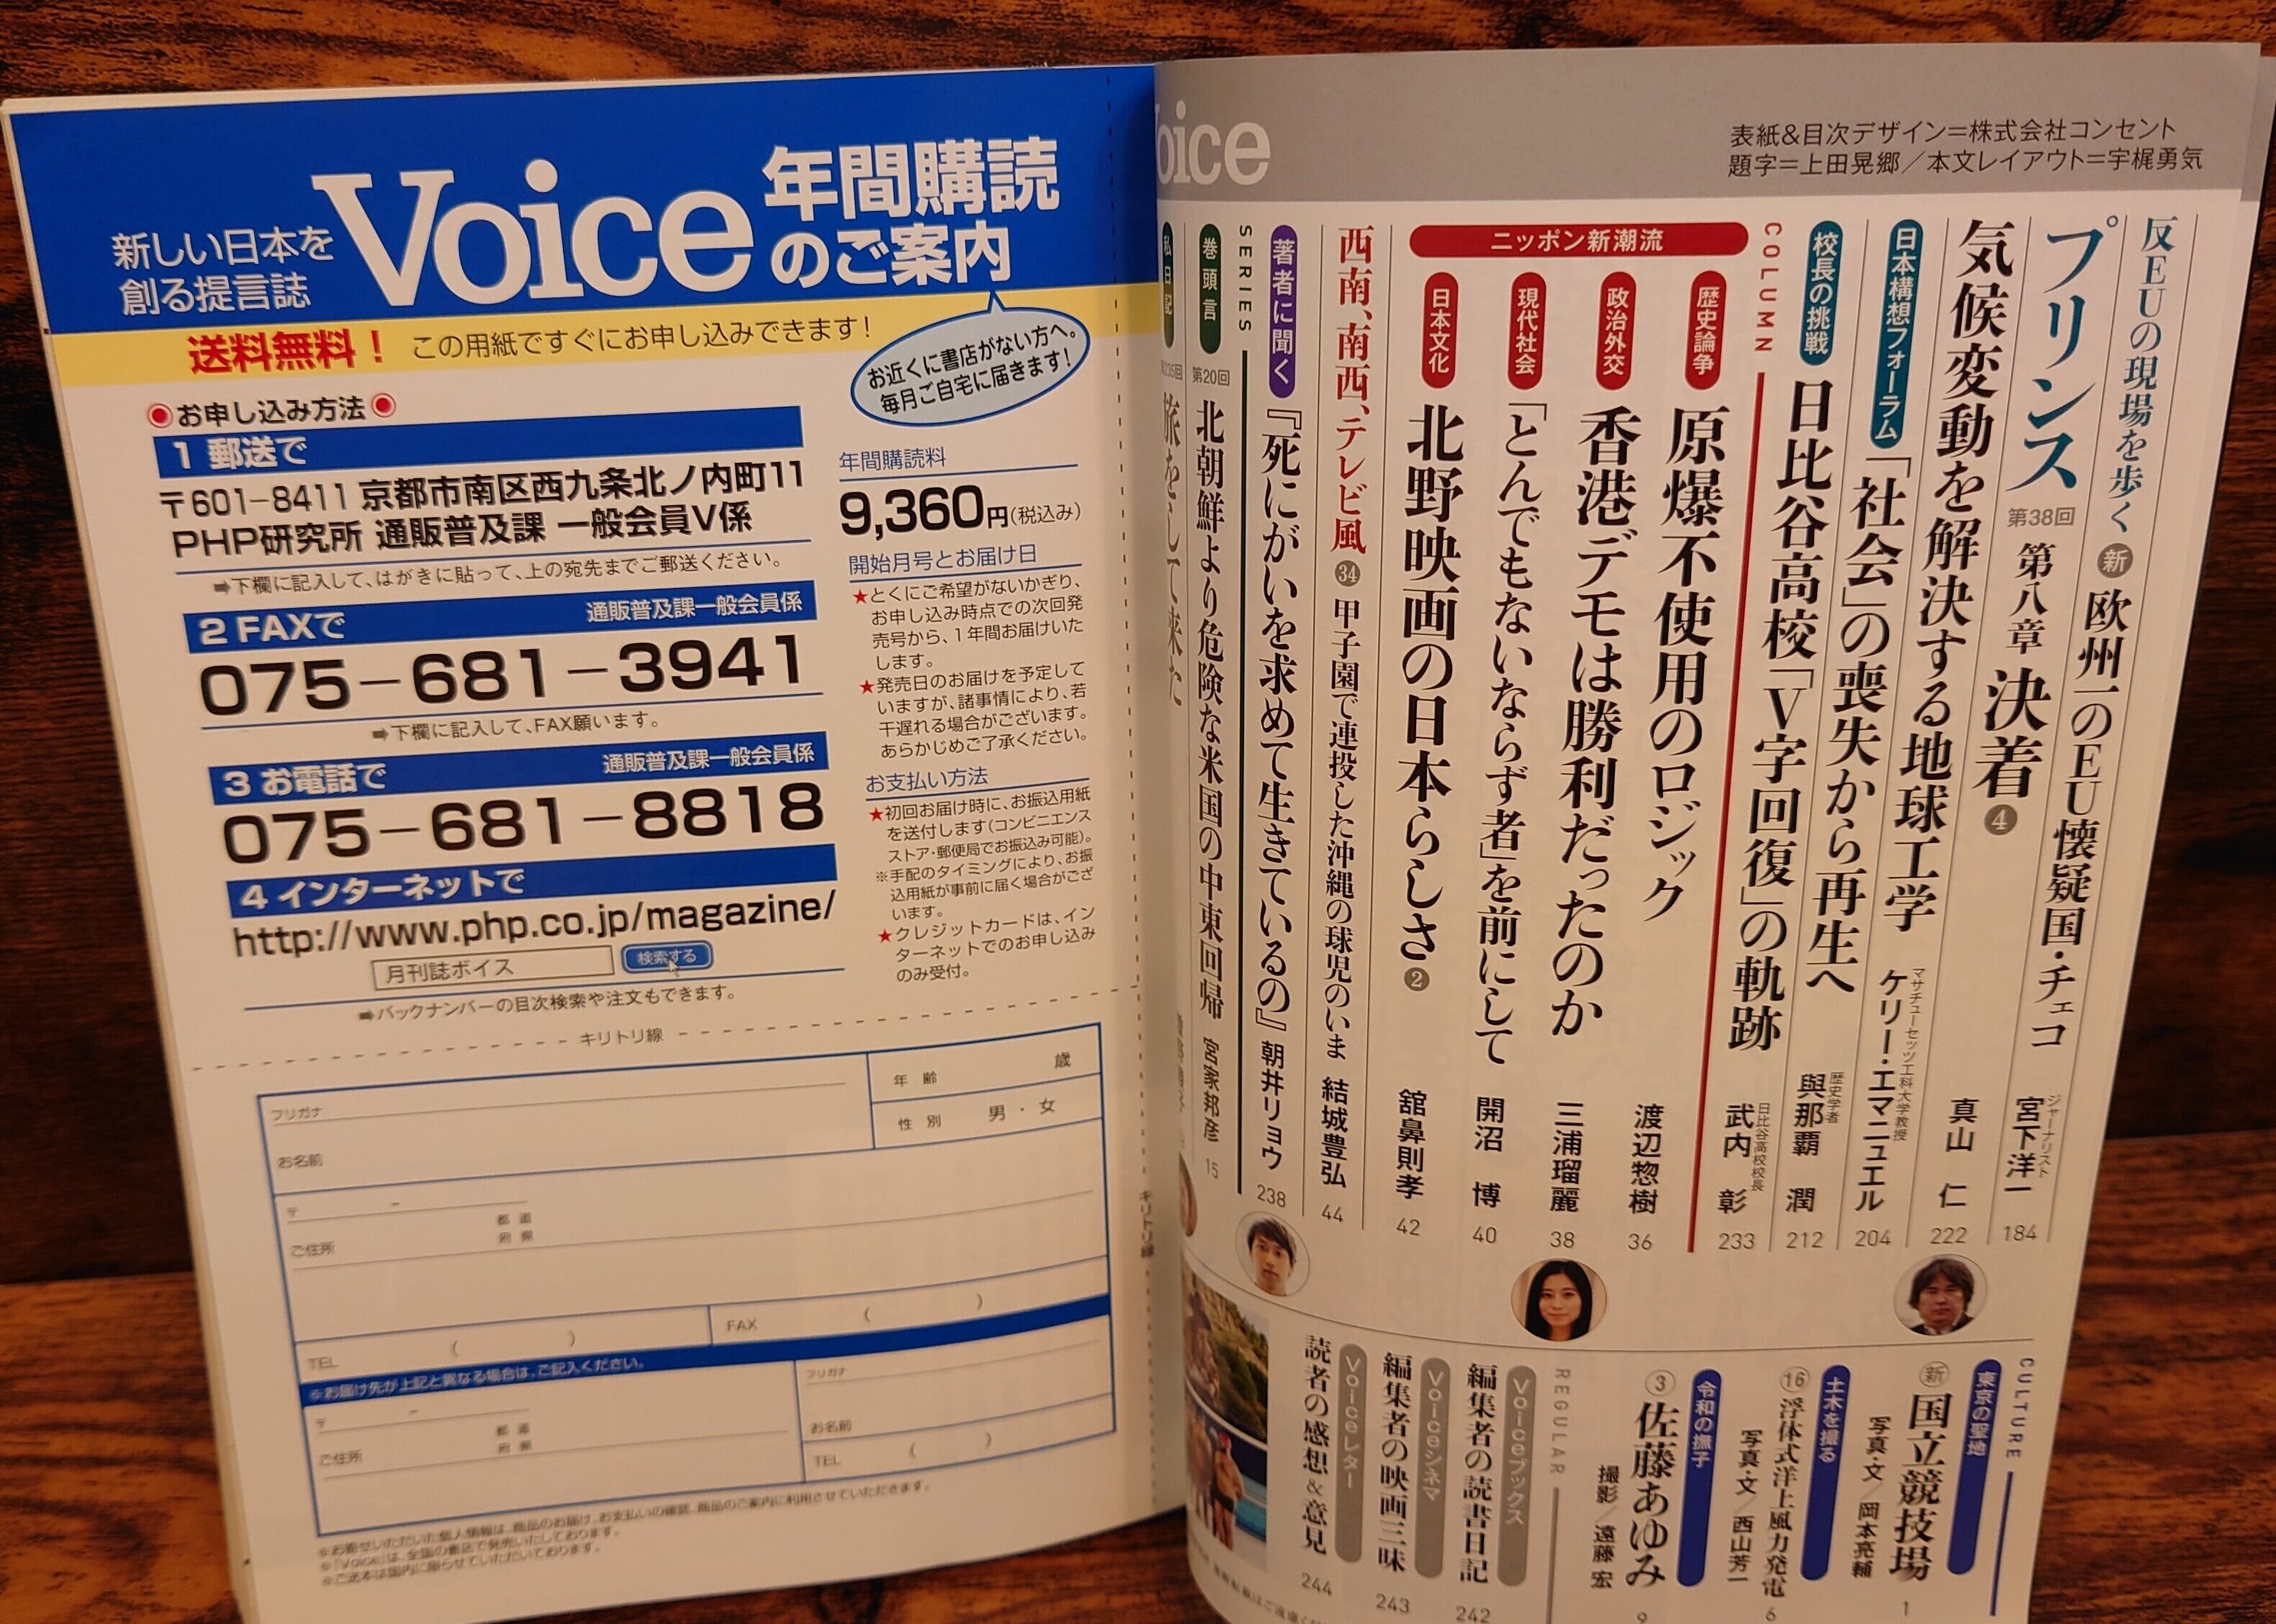 新しい日本を
創る提言誌
Voice
年間購読
のご案内
送料無料！ この用紙ですぐにお申し込みできます！
お近くに書店がない方へ。
毎月ご自宅に届きます！
◉お申し込み方法◉
1 郵送で
〒601-8411 京都市南区西九条北ノ内町11
PHP研究所 通販普及課 一般会員V係
➡下欄に記入して、はがきに貼って、上の宛先までご郵送ください。
2 FAXで 通販普及課一般会員係
075-681-3941
➡下欄に記入して、FAX願います。
3 お電話で 通販普及課一般会員係
075-681-8818
4 インターネットで
http://www.php.co.jp/magazine/
月刊誌ボイス 検索する
➡バックナンバーの目次検索や注文もできます。
年間購読料
9,360円(税込み)
開始月号とお届け日
★とくにご希望がないかぎり、
お申し込み時点での次回発
売号から、1年間お届けいた
します。
★発売日のお届けを予定して
いますが、諸事情により、若
干遅れる場合がございます。
あらかじめご了承ください。
お支払い方法
★初回お届け時に、お振込用紙
を送付します(コンビニエンス
ストア・郵便局でお振込み可能)。
※手配のタイミングにより、お振
込用紙が事前に届く場合がござ
います。
★クレジットカードは、イン
ターネットでのお申し込み
のみ受付。
キリトリ線
キリトリ線
フリガナ
お名前
年 齢 歳
性 別 男 ・ 女
〒 -
ご住所
都 道
府 県
TEL ( )
FAX ( )
※お届け先が上記と異なる場合は、ご記入ください。
〒 -
ご住所
都 道
府 県
フリガナ
お名前
TEL ( )
※お寄せいただいた個人情報は、商品のお届け、お支払いの確認、商品のご案内に利用させていただきます。
※「Voice」は、全国の書店で発売いたしております。
※ご送本は国内に限らせていただいております。
oice
表紙&目次デザイン=株式会社コンセント
題字=上田晃郷／本文レイアウト=宇梶勇気
反EUの現場を歩く 新 欧州一のEU懐疑国・チェコ ジャーナリスト 宮下洋一 184
プリンス 第38回 第八章 決着❹ 真山 仁 222
気候変動を解決する地球工学 マサチューセッツ工科大学教授 ケリー・エマニュエル 204
日本構想フォーラム 「社会」の喪失から再生へ 歴史学者 與那覇 潤 212
校長の挑戦 日比谷高校「V字回復」の軌跡 日比谷高校校長 武内 彰 233
COLUMN
ニッポン新潮流
歴史論争 原爆不使用のロジック 渡辺惣樹 36
政治外交 香港デモは勝利だったのか 三浦瑠麗 38
現代社会 「とんでもないならず者」を前にして 開沼 博 40
日本文化 北野映画の日本らしさ❷ 舘鼻則孝 42
西南、南西、テレビ風 ㉞ 甲子園で連投した沖縄の球児のいま 結城豊弘 44
著者に聞く 『死にがいを求めて生きているの』 朝井リョウ 238
SERIES
巻頭言 第20回 北朝鮮より危険な米国の中東回帰 宮家邦彦 15
私日記 第235回 旅をして来た
CULTURE
東京の聖地 新 国立競技場 写真・文／岡本亮輔 1
土木を撮る ⑯ 浮体式洋上風力発電 写真・文／西山芳一 6
令和の撫子 ③ 佐藤あゆみ 撮影／遠藤 宏 9
REGULAR
Voiceブックス 編集者の読書日記 242
Voiceシネマ 編集者の映画三昧 243
Voiceレター 読者の感想&意見 244